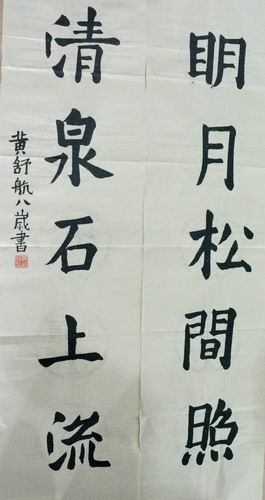 明月松間照
清泉石上流
黄舒航八歲書